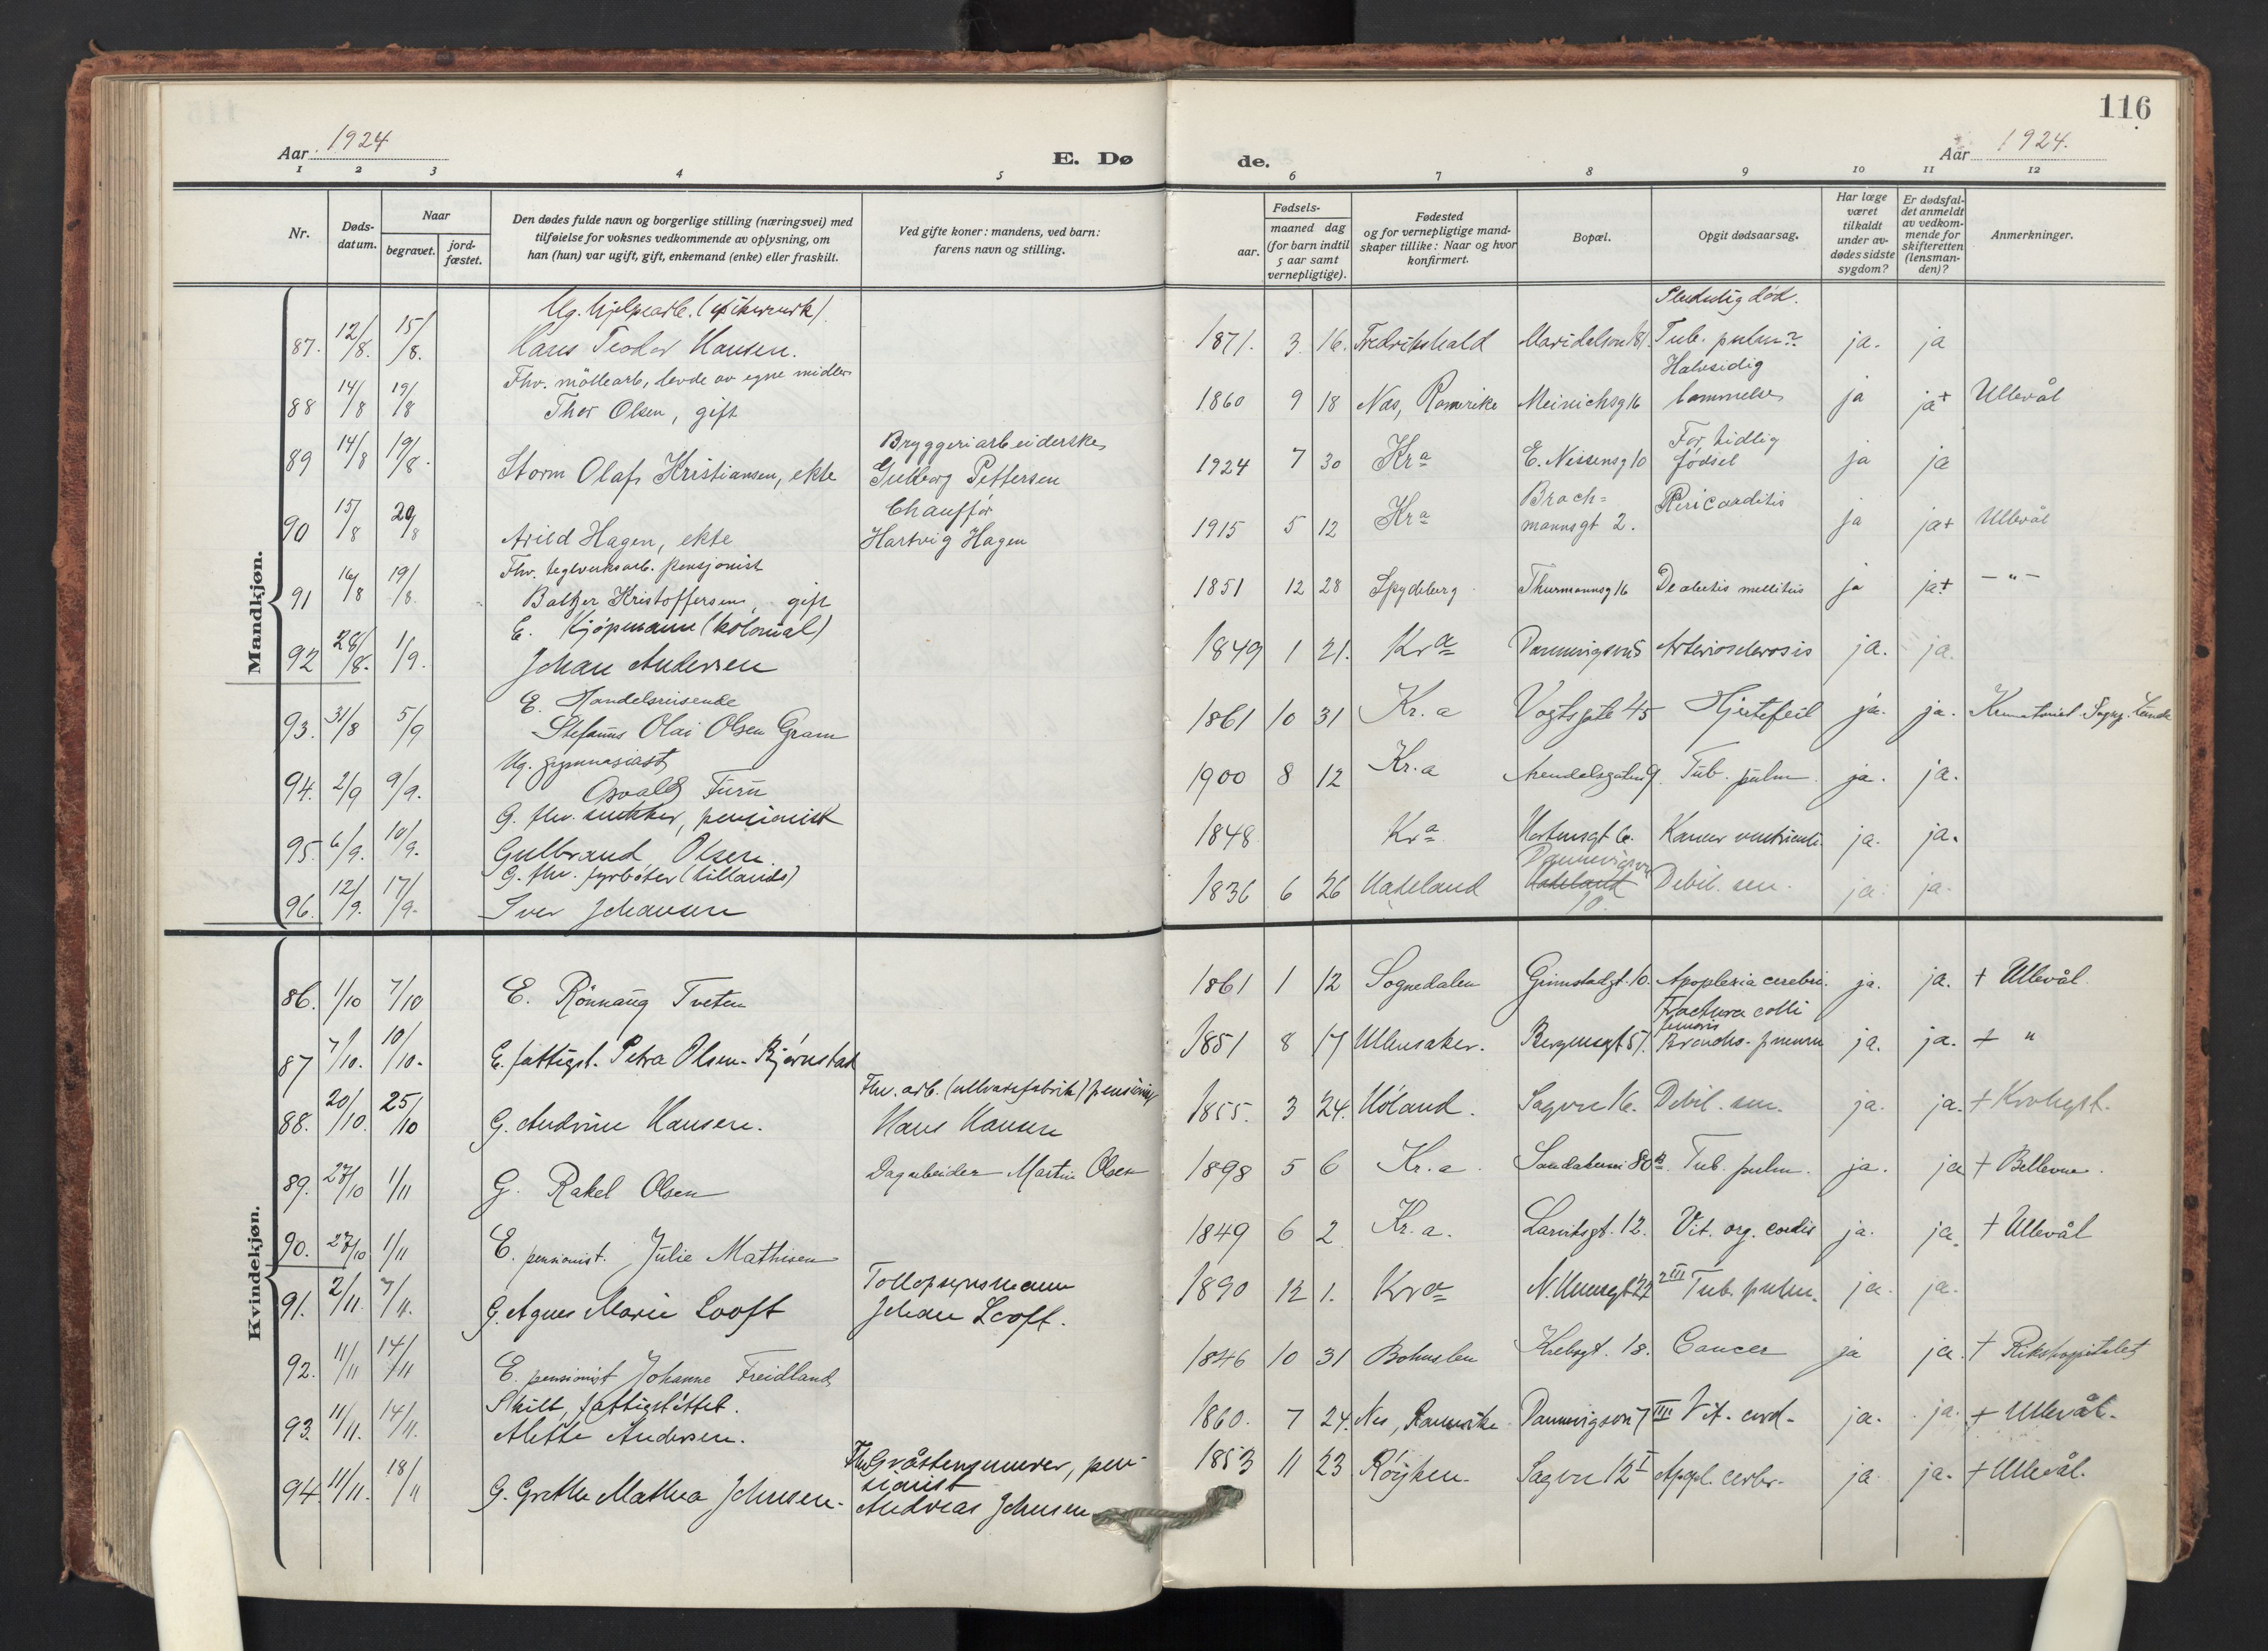 116
Aar 1924
E. Dø
de.
Aar 1924.
1 2 3 4 5 6 7 8 9 10 11 12
Nr.
Døds-
datum.
Naar
begravet.
jord-
fæstet.
Den dødes fulde navn og borgerlige stilling (næringsvei) med
tilføielse for voksnes vedkommende av oplysning, om
han (hun) var ugift, gift, enkemand (enke) eller fraskilt.
Ved gifte koner: mandens, ved barn:
farens navn og stilling.
Fødsels-
aar.
maaned dag
(for barn indtil
5 aar samt
vernepligtige).
Fødested
og for vernepligtige mand-
skaper tillike: Naar og hvor
konfirmert.
Bopæl.
Opgit dødsaarsag.
Har læge
været
tilkaldt
under av-
dødes sidste
sygdom?
Er dødsfal-
det anmeldt
av vedkom-
mende for
skifteretten
(lensman-
den)?
Anmerkninger.
Mandkjøn.
Ug. hjelpearb. Pludselig død.
87. 12/8. 15/8. Hans Teodor Hansen. 1871. 3. 16. Fredrikshald Tub. pulm? ja. ja
Fhv. möllearb, levde av egne midler Halvsidig
88 14/8 19/8 Thor Olsen, gift 1860 9 18 Nes, Romerike Meinichsg 16 lammelse ja ja+ Ullevål
Bryggeriarbeiderske For tidlig
89 14/8 19/8. Storm Olaf Kristiansen, ekte Gulborg Pettersen 1924 7 30 Kra E. Nissensg 10 fødsel ja ja
Chauffør Brach=
90 15/8 20/8 Arild Hagen, ekte Hartvig Hagen 1915 5 12 Kra mannsgt 2. Pericarditis ja ja+ Ullevål
Fhv. teglverksarb. pensjonist
91 16/8 19/8 Baltzer Kristoffersen, gift 1851 12 28 Spydeberg Thurmannsg 16 mellitus ja ja+ -"-
E. Kjøpmann (kolonial)
92 28/8. 1/9. Johan Andersen 1849 1 21. Kra Arteriosclerosis ja. ja.
E. Handelsreisende
93. 31/8 5/9 Stefanus Olai Olsen Gram 1861 10 31 Kr.a Vogtsgate 45 Hjertefeil ja. ja.
Ug. gymnasiast
94. 2/9 9/9. Osvald Furu 1900 8 12 Kr.a Arendalsgaten 9. Tub. pulm. ja. ja.
G. fhv. snekker, pensionist
95. 6/9. 10/9. Gulbrand Olsen 1848 Kra Hortensgt 6. ja. ja.
G. fhv. fyrbøter (tillands)
96. 12/9. 17/9. Iver Johansen 1836 6 26 Hadeland Hadeland 10. Debil. sen. ja. ja.
Kvindekjøn.
86. 1/10 7/10 E. Rönnaug Tveten 1861 1 12 Sognedalen Grimstadgt. 10. Apoplexia cerebri. ja. ja. + Ullevål.
Fractura colli
femoris
87 7/10. 10/10. E. fattigst. Petra Olsen-Bjørnstad 1851 8 17 Ullensaker. Bergensgt 57. Broncho-pneum ja. ja. + "
Fhv. arb. (ullvarefabrik) pensionist
88. 20/10. 25/10 G. Andrine Hansen. Hans Hansen 1855. 3 24. Höland. Sagvn 16. Debil. sen. ja. ja. +
89. 27/10 1/11 G. Rakel Olsen Dagarbeider Martin Olsen 1898 5 6 Kr.a Sandakervei 80 B. Tub. pulm. ja. ja + Bellevue.
90. 27/10 1/11 E. pensionist. Julie Mathisen 1849 6 2 Kr.a. Larviksgt. 12. Vit. org. cordis ja. ja. + Ullevål
Tollopsynsmann
91. 2/11. 7/11. G. Agnes Marie Looft Johan Looft. 1890 12 1. Kra Tub. pulm. ja. ja.
92. 11/11 14/11 E. pensionist Johanne Freidland 1846 10 31 Bohuslen 18. Cancer ja ja. + Rikshospitalet
Skilt, fattigstöttet.
93. 11/11. 14/11. Alette Andersen. 1860. 7 24. Nes, Romerike Dannevigsvn 7 III Vit. cord- ja. ja. + Ullevål.
Fhv. Gråstensmurer, pen-
sionist
94. 11/11. 18/11 G. Grethe Mathea Johnsen- Andreas Johnsen 1853 11 23 Røyken Sagvn 12 I Apopl. cerbr- ja. ja. + Ullevål.